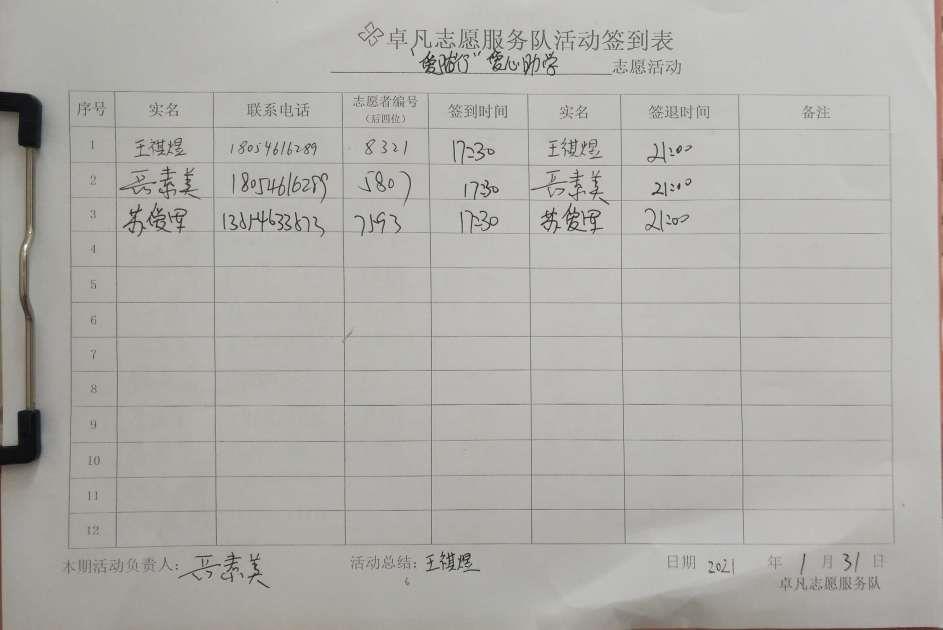 卓凡志愿服务队活动签到表
爱心助学 志愿活动
序号 实名 联系电话 志愿者编号（后四位） 签到时间 实名 签退时间 备注
1 王祺煜 18054616289 8321 17:30 王祺煜 21:00
2 素美 18054616289 5807 17:30 素美 21:00
3 苏俊 7593 17:30 苏俊 21:00
4
5
6
7
8
9
10
11
12
本期活动负责人： 素美 活动总结：王祺煜 日期 2021 年 1 月 31 日
卓凡志愿服务队